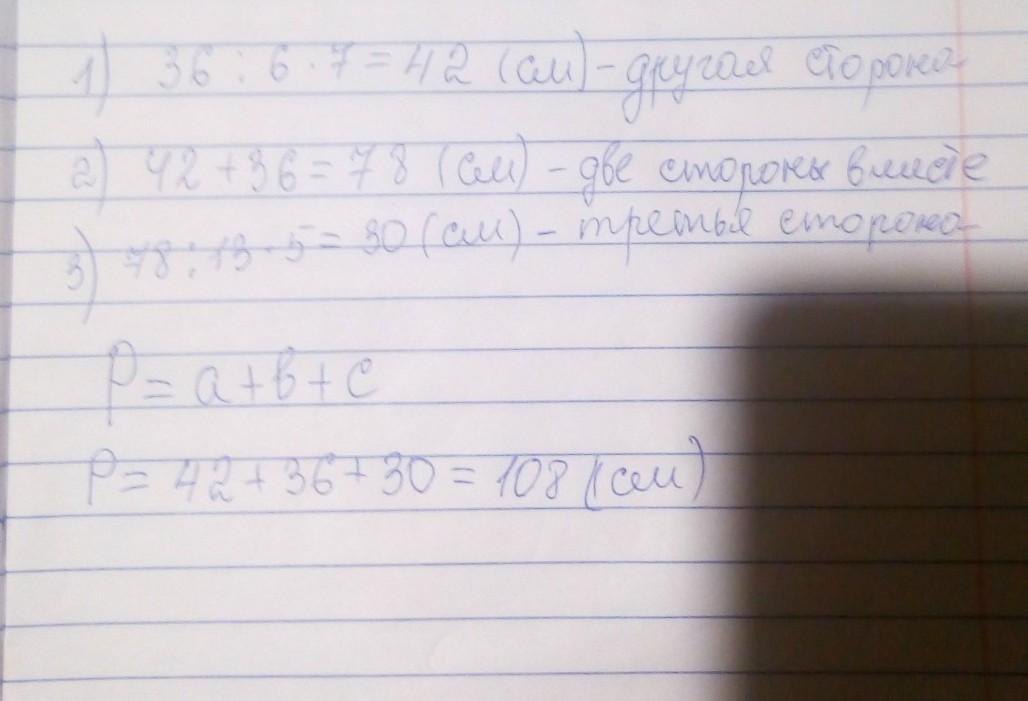 1) 36 : 6 · 7 = 42 (см) - другая сторона
2) 42 + 36 = 78 (см) - две стороны вместе
3) 78 : 13 · 5 = 30 (см) - третья сторона
P = a + b + c
P = 42 + 36 + 30 = 108 (см)